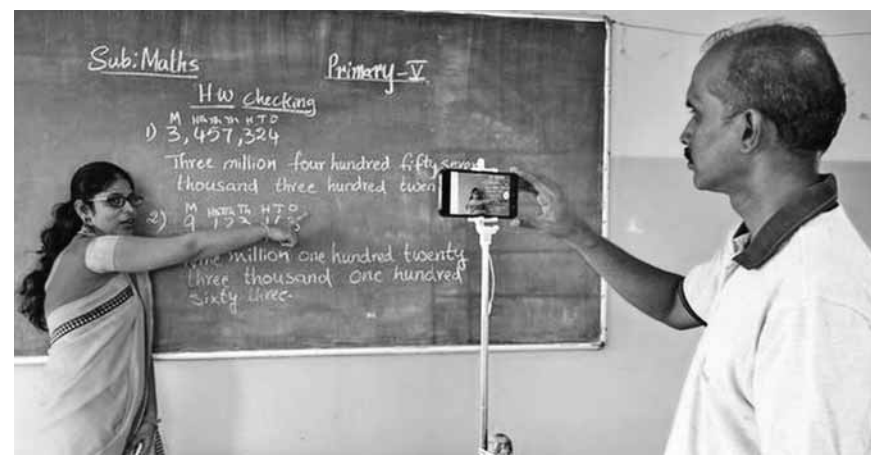 Sub: Maths
Primary-V
HW checking
M HTh TTh Th H T O
1) 3,457,324
Three million four hundred fifty seven
thousand three hundred
2) M HTh TTh Th H T O
9
million one hundred twenty
three thousand one hundred
sixty three.